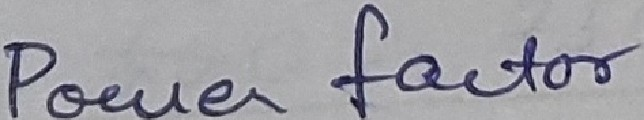 Power factor